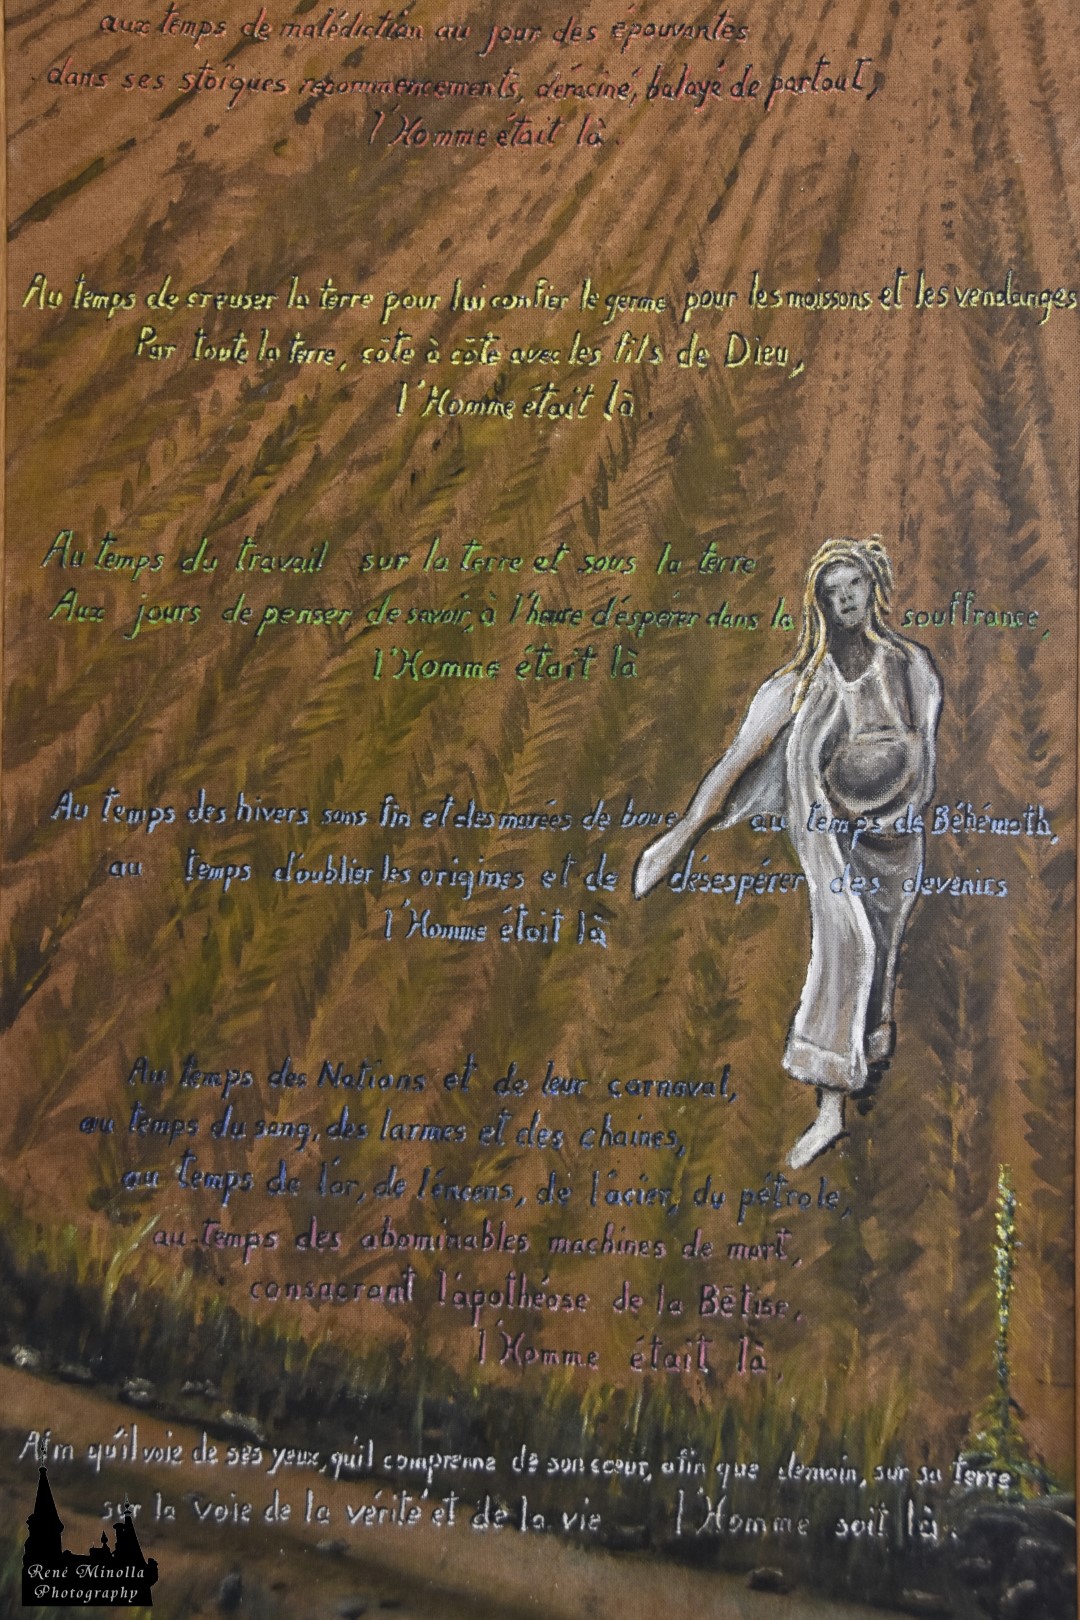 aux temps de malédiction au jour des épouvantes
dans ses stoïques recommencements, déraciné, balayé de partout,
l'Homme était là.
Au temps de creuser la terre pour lui confier le germe pour les moissons et les vendanges
Par toute la terre, côte à côte avec les fils de Dieu,
l'Homme était là
Au temps du travail sur la terre et sous la terre
Aux jours de penser de savoir, à l'heure d'espérer dans la souffrance,
l'Homme était là
Au temps des hivers sans fin et des marées de boue au temps de Béhémoth,
au temps d'oublier les origines et de désespérer des devenirs
l'Homme était là
Au temps des Nations et de leur carnaval,
au temps du sang, des larmes et des chaines,
au temps de l'or, de l'encens, de l'acier, du pétrole,
au temps des abominables machines de mort,
consacrant l'apothéose de la Bêtise,
l'Homme était là,
Afin qu'il voie de ses yeux, qu'il comprenne de son cœur, afin que demain, sur sa terre
sur la voie de la vérité et de la vie l'Homme soit là.
René Minolla
Photography